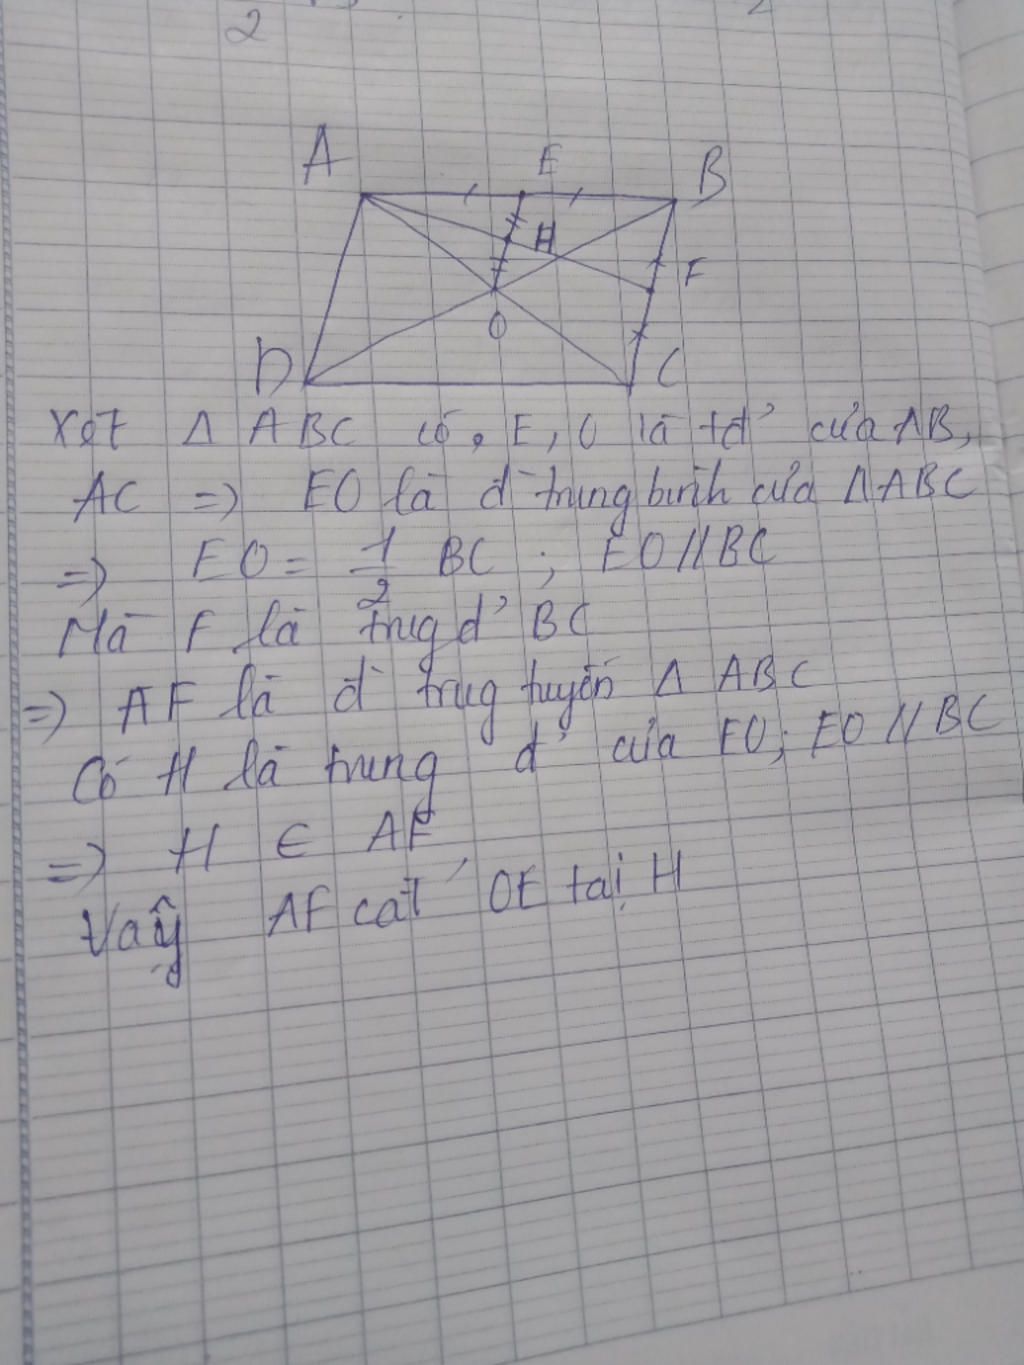 2
A E B
H
F
O
D C
Xét Δ ABC có, E, O là tđ' của AB,
AC => EO là đ trung bình của ΔABC
=> EO = 1/2 BC ; EO // BC
Mà F là trug đ' BC
=> AF là đ trug tuyến Δ ABC
Có H là trung đ' của EO; EO // BC
=> H ∈ AF
Vậy AF cắt OE tại H